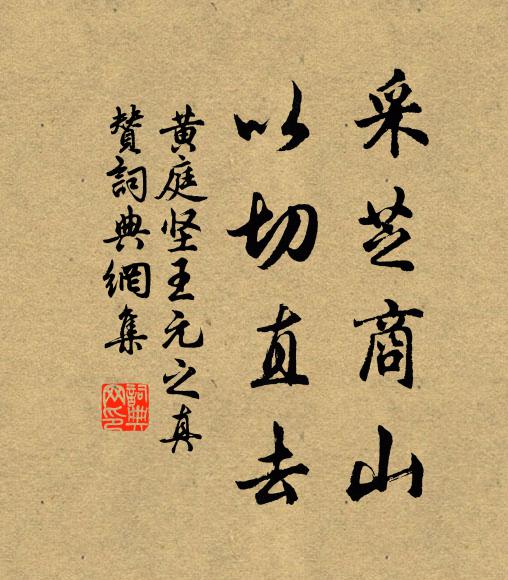 采芝商山
以切直去
黄庭坚王元之真
贊詞典網集
詞典网印